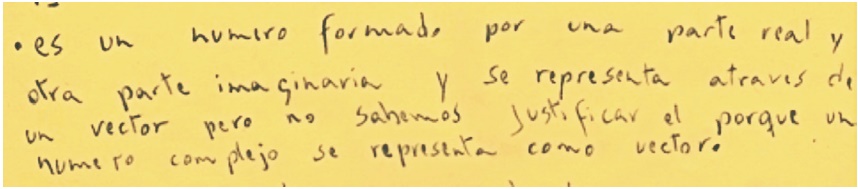 • es un numero formado por una parte real y
otra parte imaginaria y se representa atraves de
un vector pero no sabemos justificar el porque un
numero complejo se representa como vector.